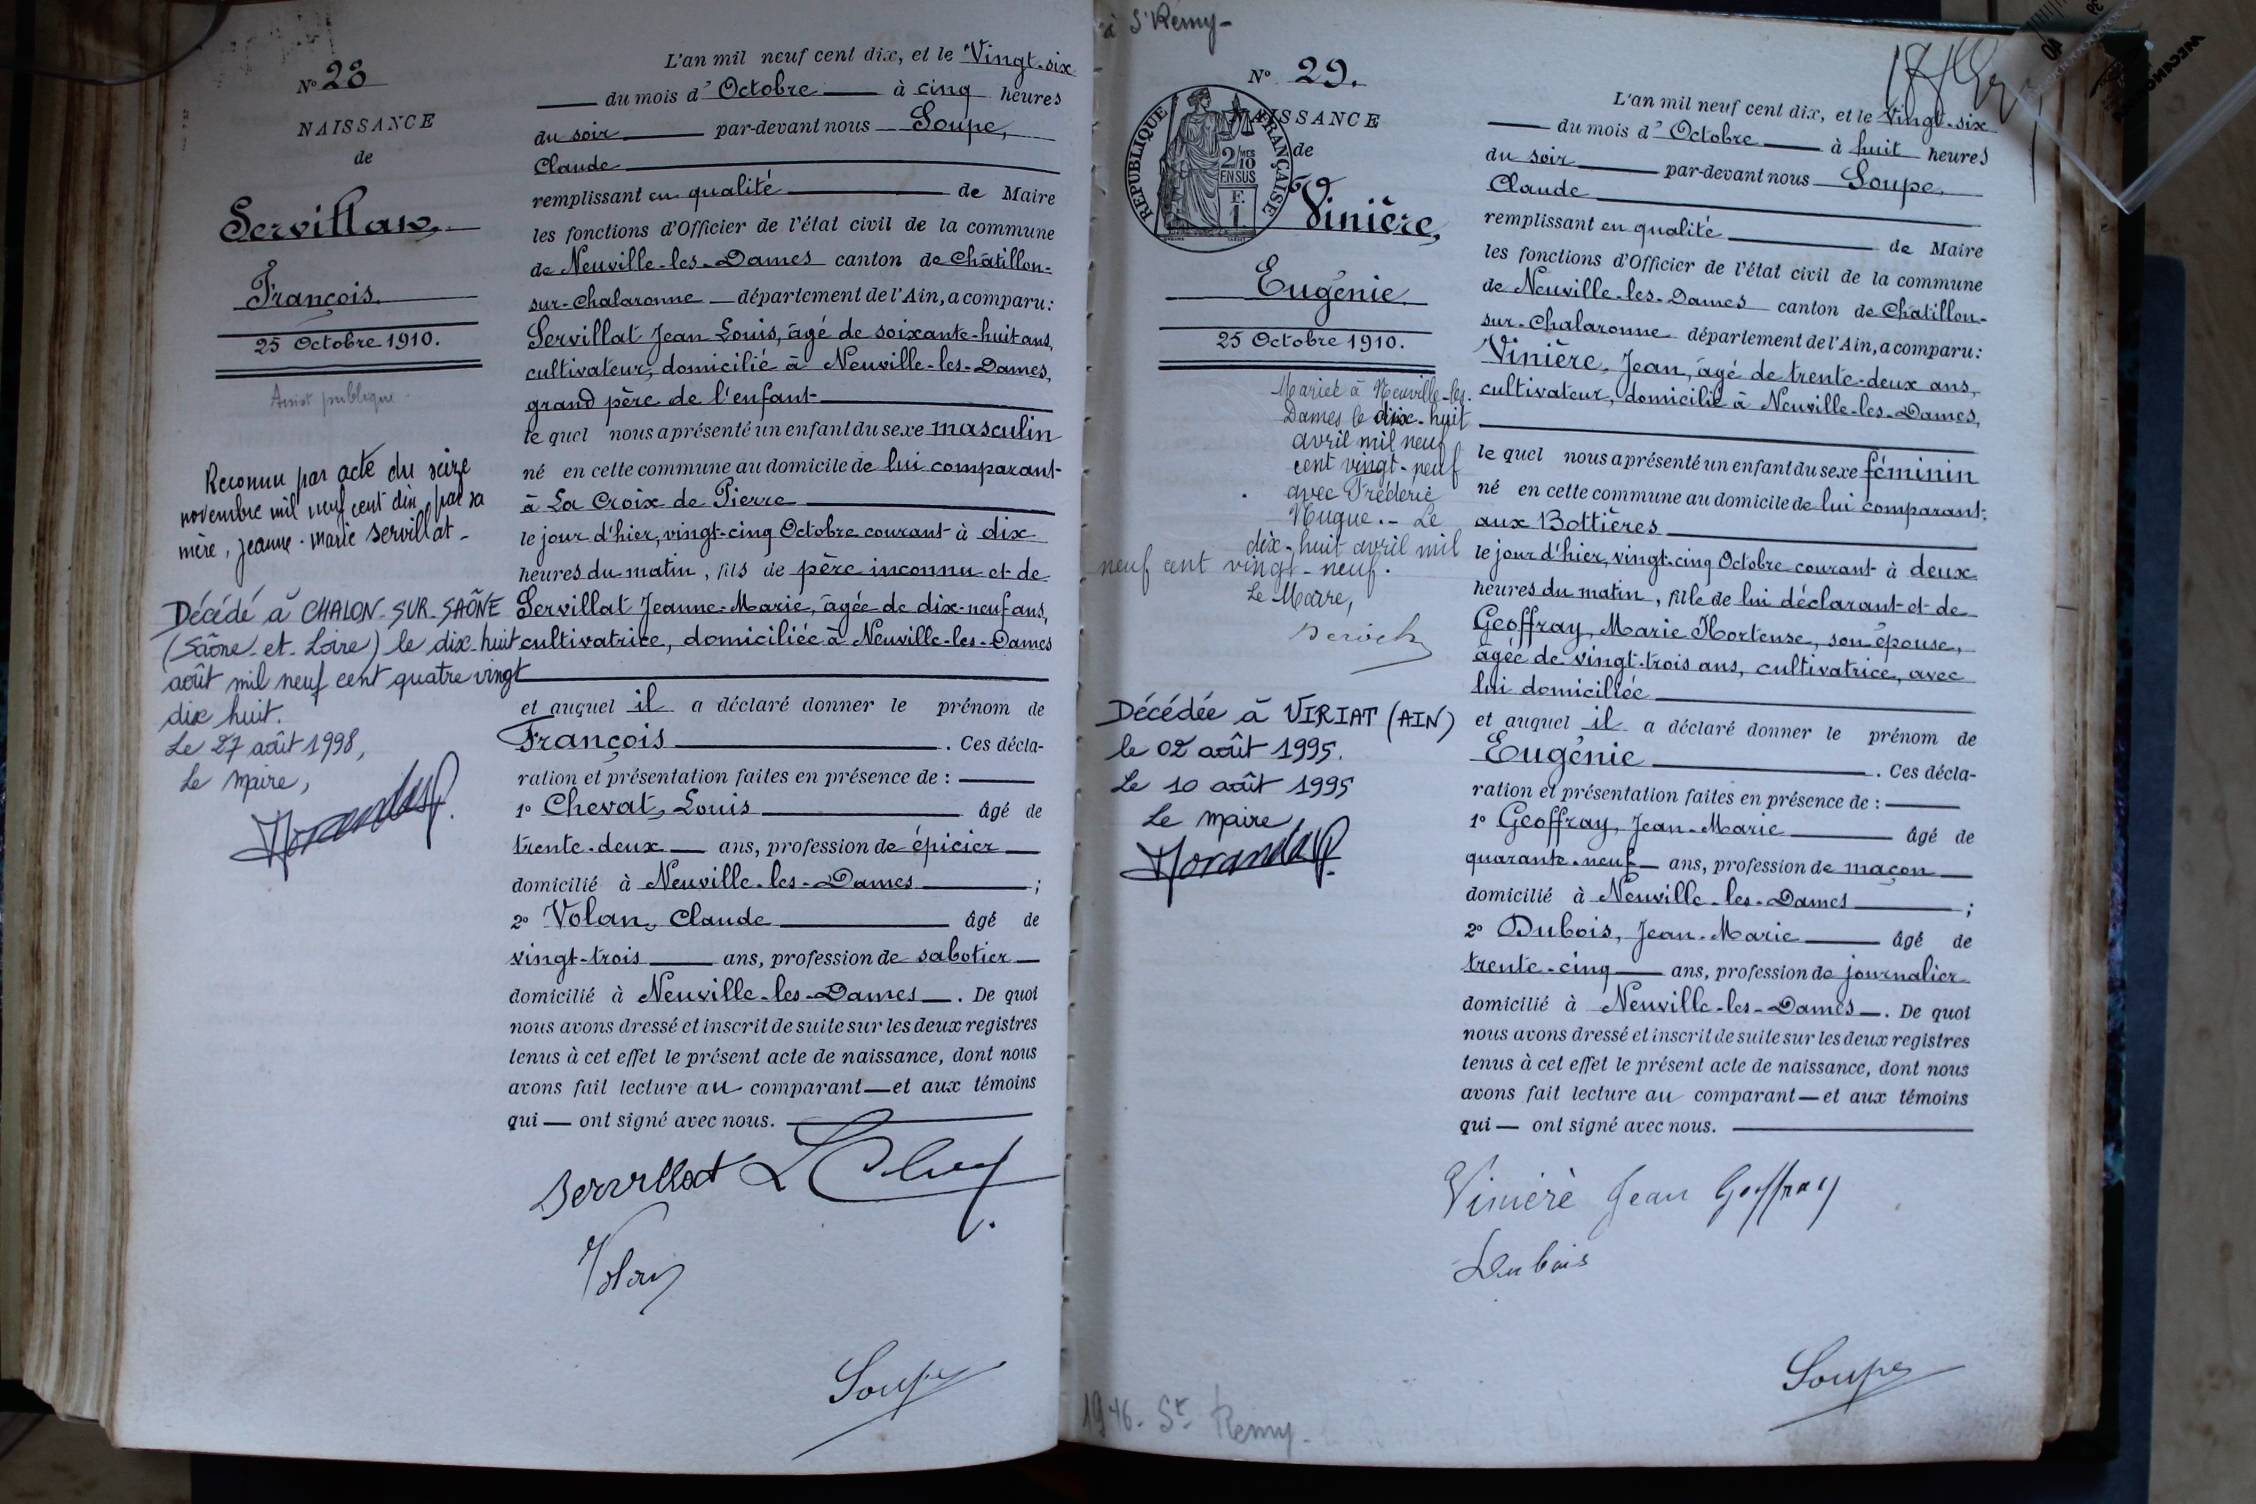 N° 28
NAISSANCE
de
Servillat,
François.
25 Octobre 1910.
Assist publique.
Reconnu par acte du seize
novembre mil neuf cent dix par sa
mère, Jeanne-Marie Servillat-
Décédé à CHALON-SUR-SAÔNE
(Saône-et-Loire) le dix-huit
août mil neuf cent quatre vingt
dix huit.
Le 27 août 1998,
Le Maire,
L'an mil neuf cent dix, et le Vingt-six
du mois d'Octobre à cinq heures
du soir par-devant nous Soupe,
Claude
remplissant en qualité de Maire
les fonctions d'Officier de l'état civil de la commune
de Neuville-les-Dames canton de Châtillon-
sur-Chalaronne département de l'Ain, a comparu:
Servillat Jean Louis, âgé de soixante-huit ans,
cultivateur, domicilié à Neuville-les-Dames,
grand père de l'enfant
le quel nous a présenté un enfant du sexe masculin
né en cette commune au domicile de lui comparant
à La Croix de Pierre
le jour d'hier, vingt-cinq Octobre courant à dix
heures du matin, fils de père inconnu et de
Servillat Jeanne-Marie, âgée de dix-neuf ans,
cultivatrice, domiciliée à Neuville-les-Dames
et auquel il a déclaré donner le prénom de
François. Ces décla-
ration et présentation faites en présence de :
1° Chevat, Louis âgé de
trente-deux ans, profession de épicier
domicilié à Neuville-les-Dames ;
2° Volan, Claude âgé de
vingt-trois ans, profession de sabotier
domicilié à Neuville-les-Dames. De quoi
nous avons dressé et inscrit de suite sur les deux registres
tenus à cet effet le présent acte de naissance, dont nous
avons fait lecture au comparant et aux témoins
qui ont signé avec nous.
Servillat
Volan
Soupe
à St Rémy-
N° 29.
RÉPUBLIQUE FRANÇAISE
2/10 MES
EN SUS
F.
1
NAISSANCE
de
Vinière,
Eugénie
25 Octobre 1910.
Mariée à Neuville-les-
Dames le dix-huit
avril mil neuf
cent vingt-neuf
avec Frédéric
Nugue.- Le
dix-huit avril mil
neuf cent vingt-neuf.
Le Maire,
Décédée à VIRIAT (AIN)
le 02 août 1995.
Le 10 août 1995
Le Maire
L'an mil neuf cent dix, et le Vingt-six
du mois d'Octobre à huit heures
du soir par-devant nous Soupe,
Claude
remplissant en qualité de Maire
les fonctions d'Officier de l'état civil de la commune
de Neuville-les-Dames canton de Châtillon-
sur-Chalaronne département de l'Ain, a comparu:
Vinière, Jean, âgé de trente-deux ans,
cultivateur, domicilié à Neuville-les-Dames,
le quel nous a présenté un enfant du sexe féminin
né en cette commune au domicile de lui comparant
aux Bottières
le jour d'hier, vingt-cinq Octobre courant à deux
heures du matin, fille de lui déclarant et de
Geoffray, Marie Hortense, son épouse,
âgée de vingt-trois ans, cultivatrice, avec
lui domiciliée
et auquel il a déclaré donner le prénom de
Eugénie. Ces décla-
ration et présentation faites en présence de :
1° Geoffray, Jean-Marie âgé de
quarante-neuf ans, profession de maçon
domicilié à Neuville-les-Dames ;
2° Dubois, Jean-Marie âgé de
trente-cinq ans, profession de journalier
domicilié à Neuville-les-Dames. De quoi
nous avons dressé et inscrit de suite sur les deux registres
tenus à cet effet le présent acte de naissance, dont nous
avons fait lecture au comparant et aux témoins
qui ont signé avec nous.
Vinière Jean Geoffray
Dubois
Soupe
1946. St Rémy-